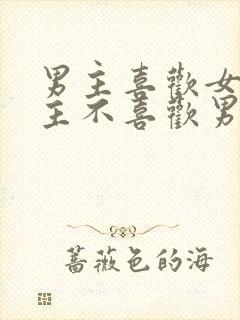 男主喜歡女
主不喜歡男
蔷薇色的海